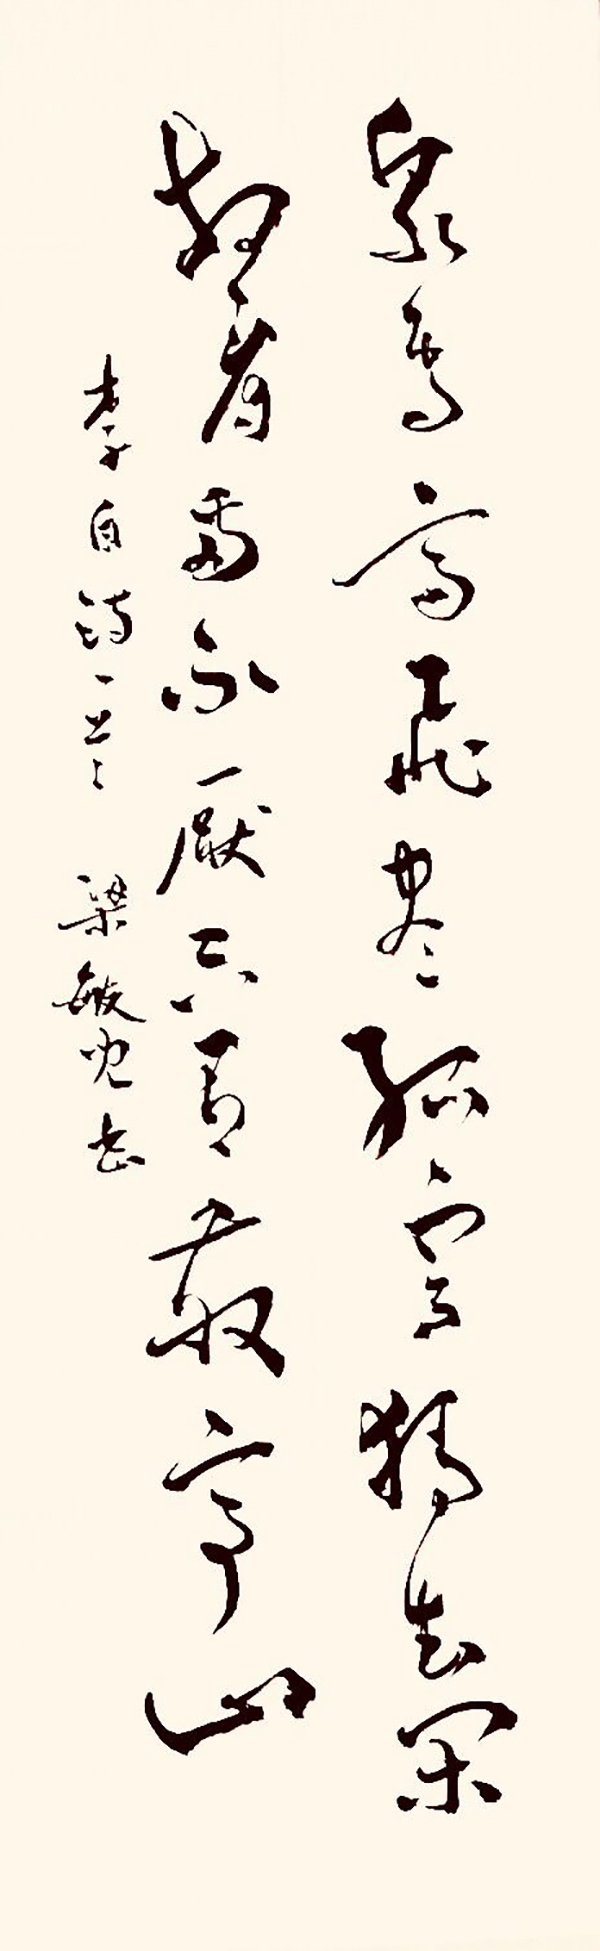 眾鳥高飛盡孤雲獨去閑
相看兩不厭只有敬亭山
李白詩一首 梁敏 書